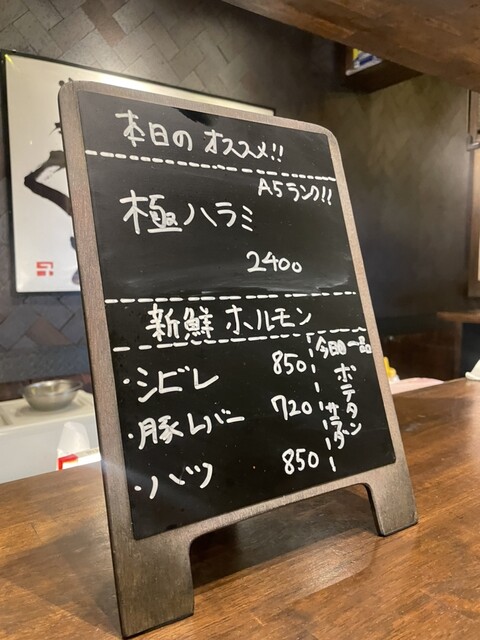 本日のオススメ!!
A5ランク!!
極ハラミ
2400
新鮮ホルモン
・シビレ 850
・豚レバー 720
・ハツ 850
今日の一品
ポテタン
サラダ